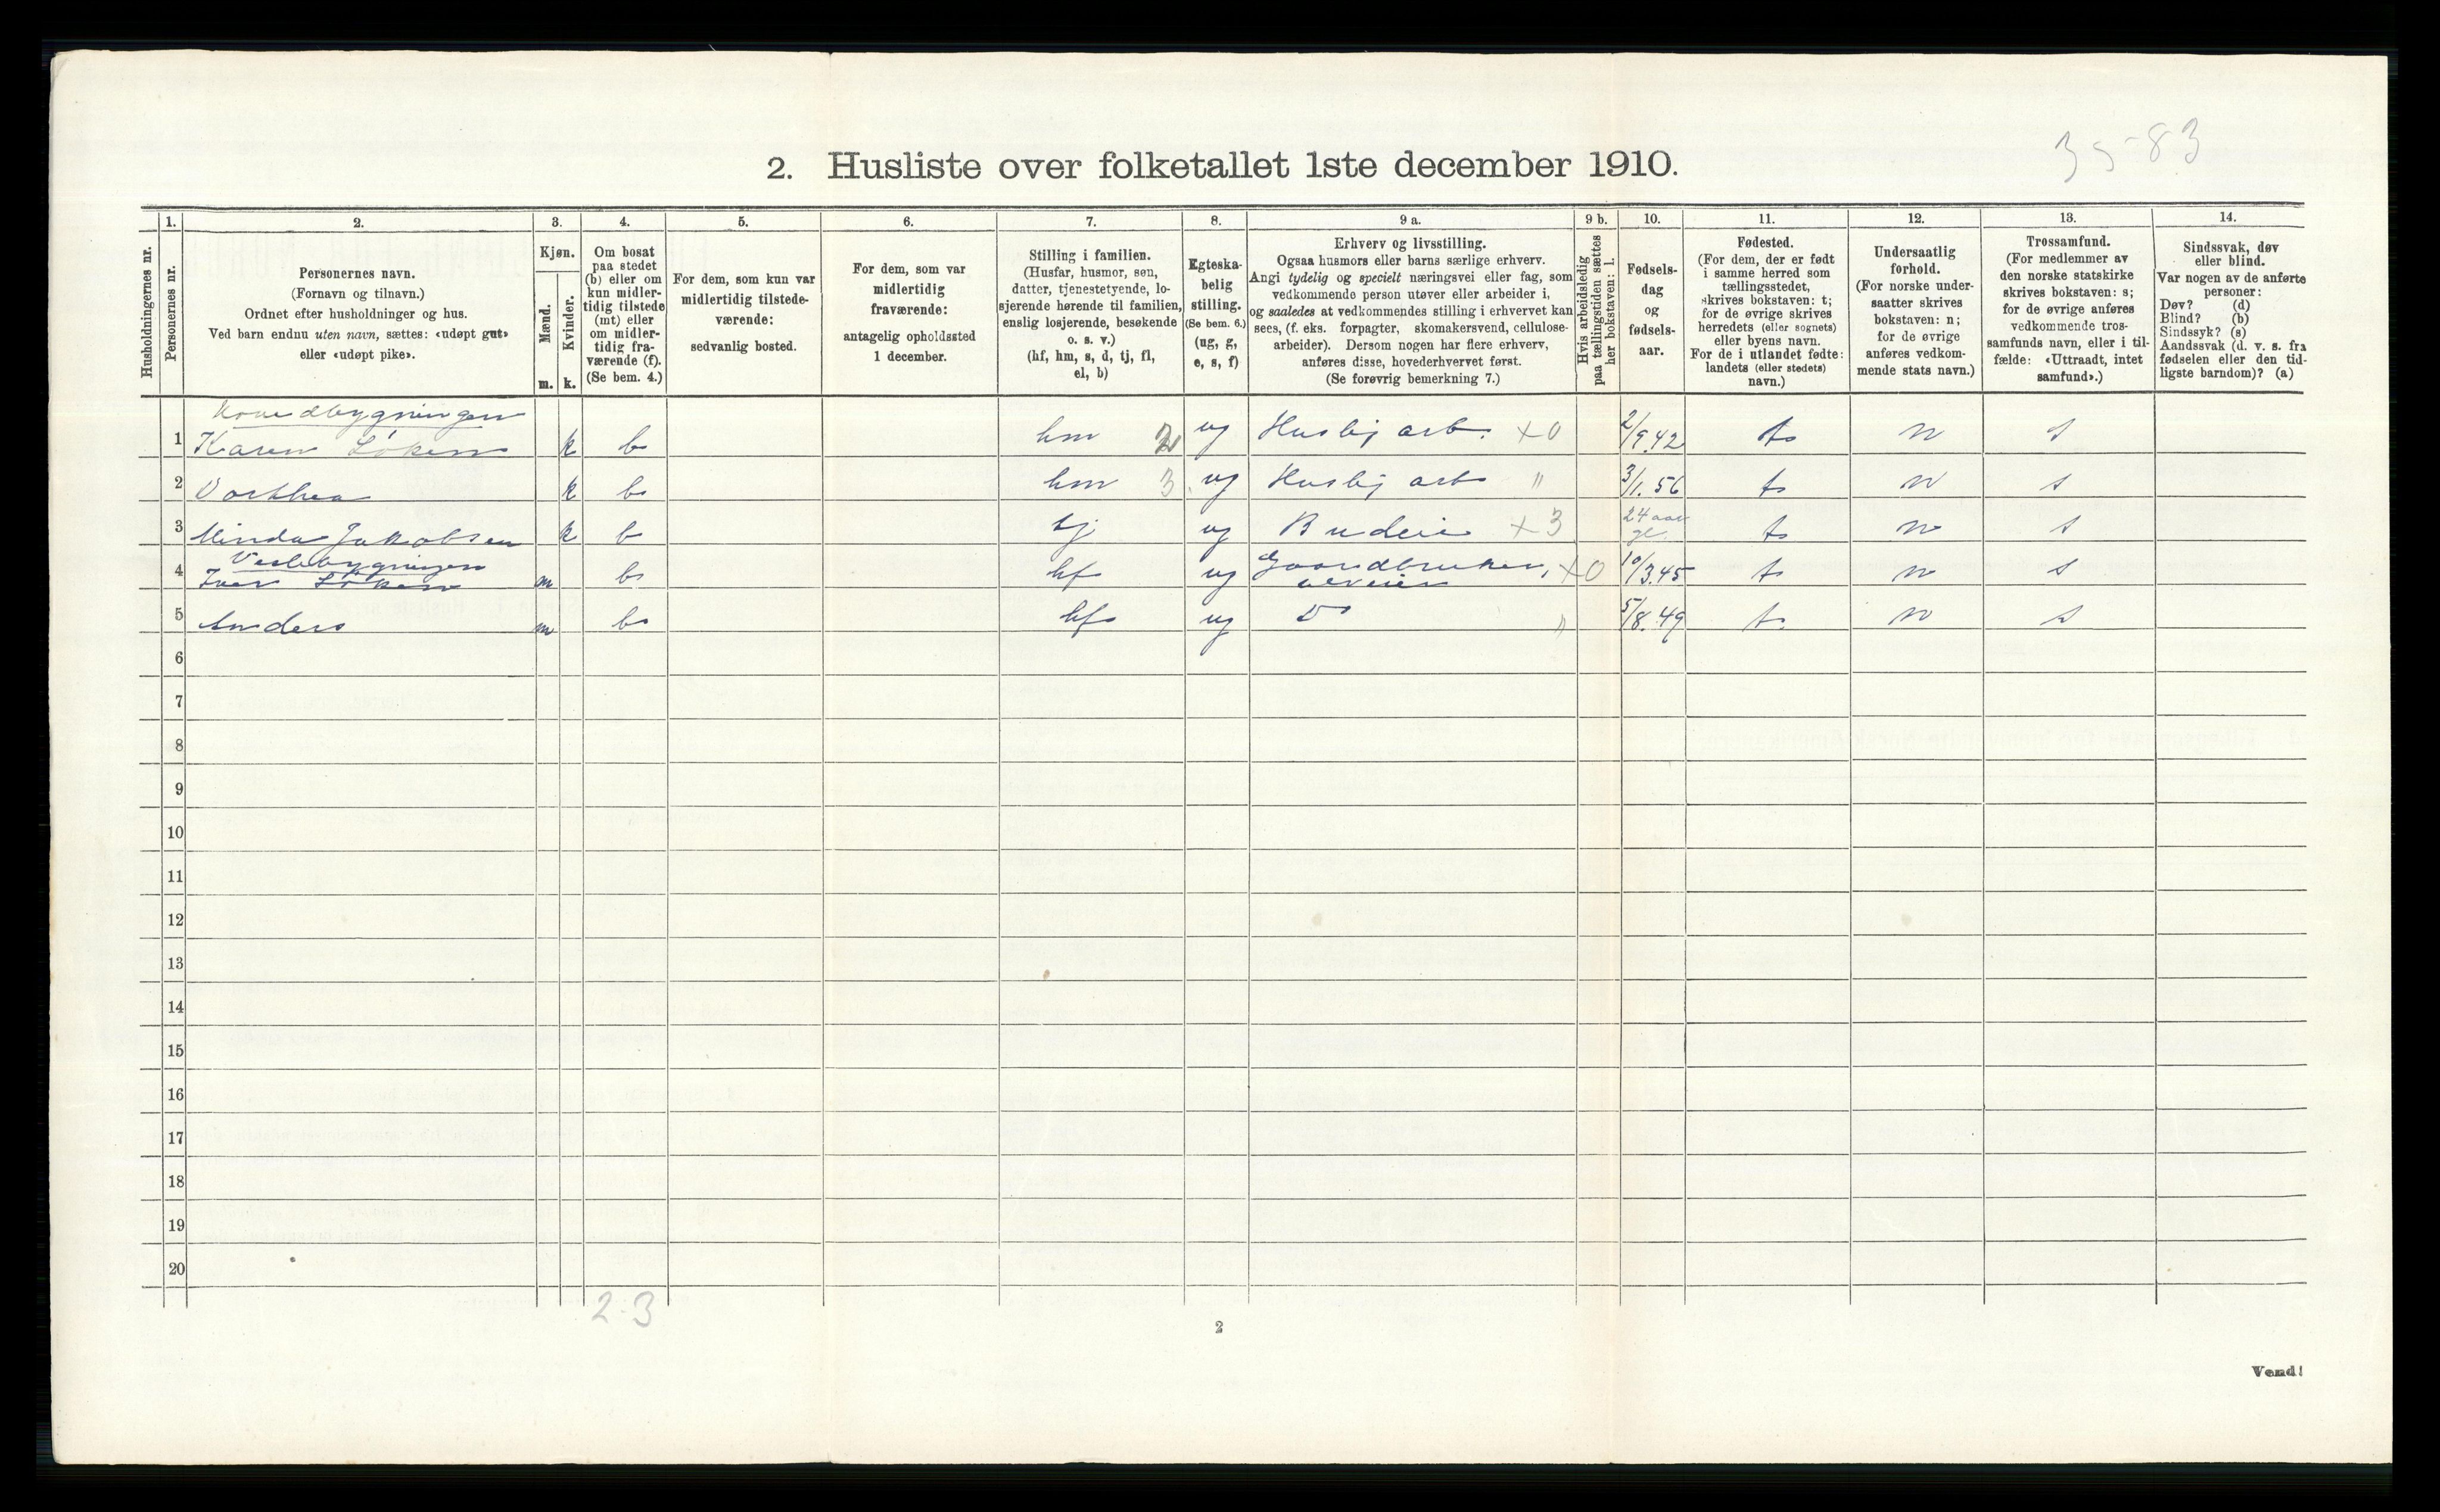 35-83
2. Husliste over folketallet 1ste december 1910.
Husholdningernes nr.
1. Personernes nr.
2. Personernes navn.
(Fornavn og tilnavn.)
Ordnet efter husholdninger og hus.
Ved barn endnu uten navn, sættes: «udøpt gut»
eller «udøpt pike».
3. Kjøn.
Mænd. m.
Kvinder. k.
4. Om bosat
paa stedet
(b) eller om
kun midler-
tidig tilstede
(mt) eller
om midler-
tidig fra-
værende (f).
(Se bem. 4.)
5. For dem, som kun var
midlertidig tilstede-
værende:
sedvanlig bosted.
6. For dem, som var
midlertidig
fraværende:
antagelig opholdssted
1 december.
7. Stilling i familien.
(Husfar, husmor, søn,
datter, tjenestetyende, lo-
sjerende hørende til familien,
enslig losjerende, besøkende
o. s. v.)
(hf, hm, s, d, tj, fl,
el, b)
8. Egteska-
belig
stilling.
(Se bem. 6.)
(ug, g,
e, s, f)
9 a. Erhverv og livsstilling.
Ogsaa husmors eller barns særlige erhverv.
Angi tydelig og specielt næringsvei eller fag, som
vedkommende person utøver eller arbeider i,
og saaledes at vedkommendes stilling i erhvervet kan
sees, (f. eks. forpagter, skomakersvend, cellulose-
arbeider). Dersom nogen har flere erhverv,
anføres disse, hovederhvervet først.
(Se forøvrig bemerkning 7.)
9 b. Hvis arbeidsledig
paa tællingstiden sættes
her bokstaven: l.
10. Fødsels-
dag
og
fødsels-
aar.
11. Fødested.
(For dem, der er født
i samme herred som
tællingsstedet,
skrives bokstaven: t;
for de øvrige skrives
herredets (eller sognets)
eller byens navn.
For de i utlandet fødte:
landets (eller stedets)
navn.)
12. Undersaatlig
forhold.
(For norske under-
saatter skrives
bokstaven: n;
for de øvrige
anføres vedkom-
mende stats navn.)
13. Trossamfund.
(For medlemmer av
den norske statskirke
skrives bokstaven: s;
for de øvrige anføres
vedkommende tros-
samfunds navn, eller i til-
fælde: «Uttraadt, intet
samfund».)
14. Sindssvak, døv
eller blind.
Var nogen av de anførte
personer:
Døv? (d)
Blind? (b)
Sindssyk? (s)
Aandssvak (d. v. s. fra
fødselen eller den tid-
ligste barndom)? (a)
Hovedbygningen
1 Karen Løken k b hm 2 ug Huslig arb. x0 2/9.42 t n s
2 Dorthea k b hm 3 ug Huslig arb " 3/1.56 t n s
3 Minda Jakobsen k b tj ug Budeie x3 24 aar gl. t n s
Vestbygningen
4 Iver Løken m b hf ug Gaardbruker, selveier x0 10/3.45 t n s
5 Anders m b hf ug Do " 5/8.49 t n s
6
7
8
9
10
11
12
13
14
15
16
17
18
19
20
2-3
2
Vend!